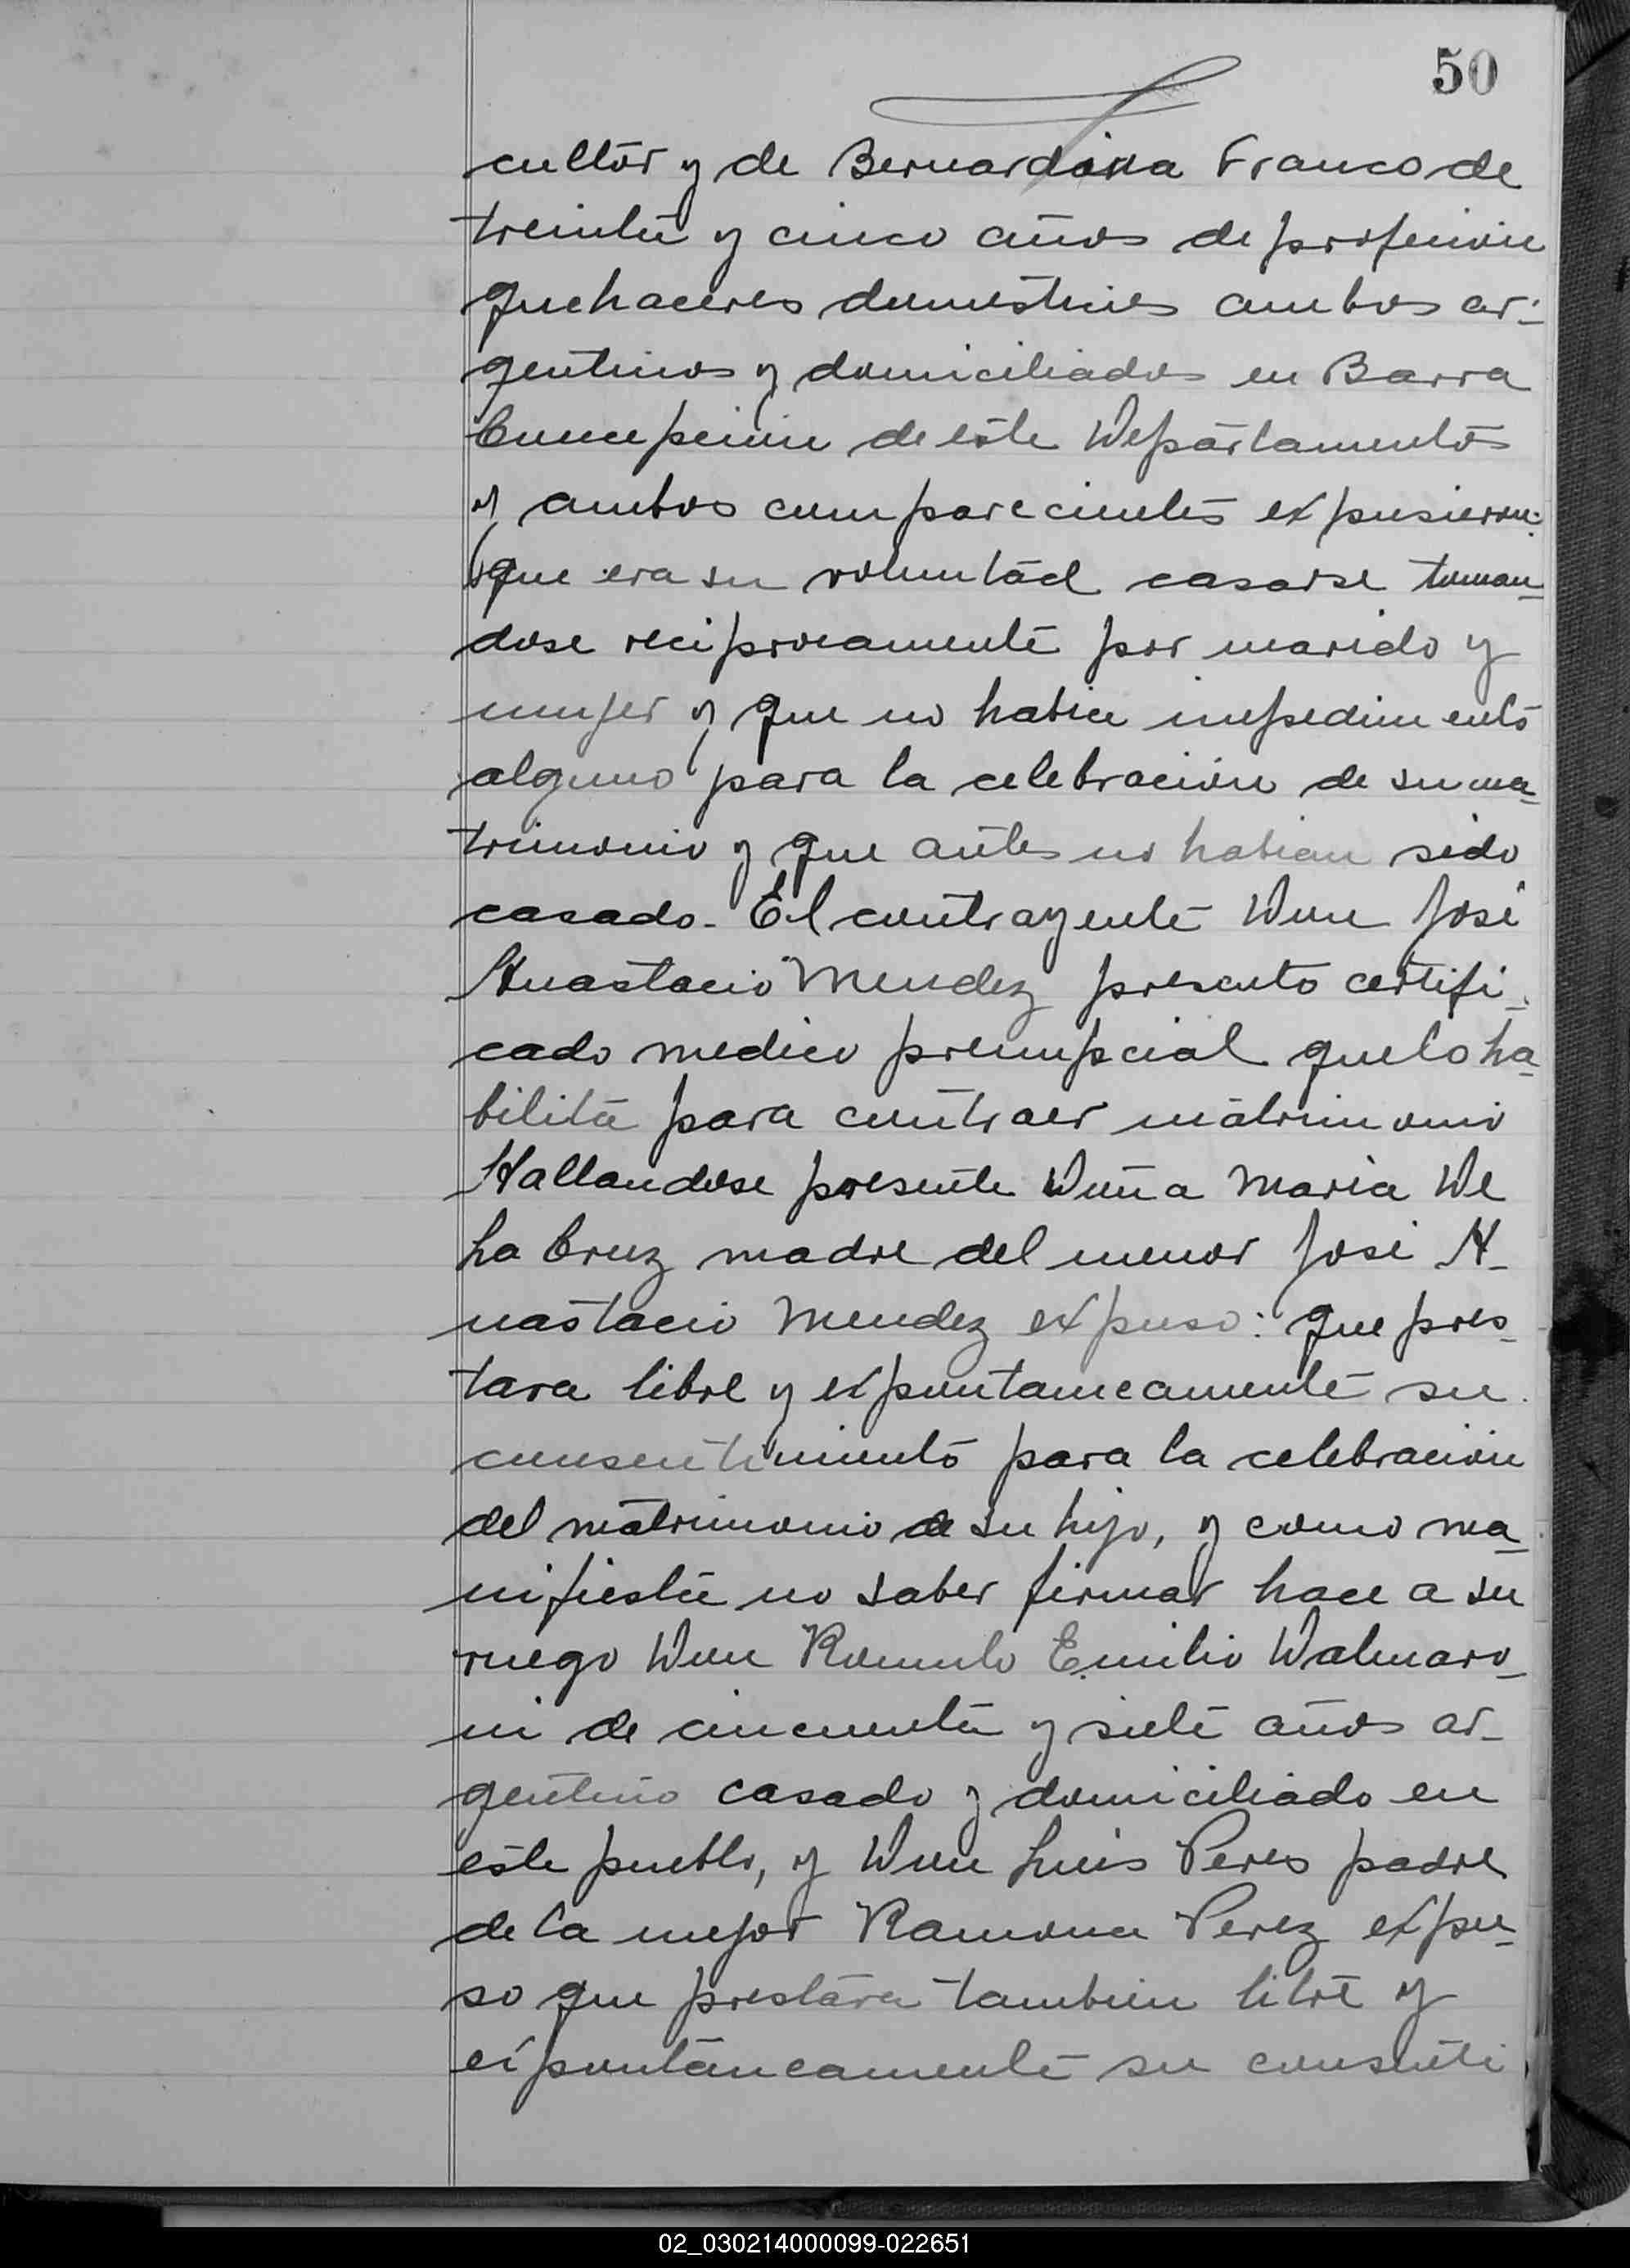 50
cultor y de Bernardina Franco de
treinta y cinco años de profesion
quehaceres domesticos ambos ar-
gentinos y domiciliados en Barra
Concepcion de este Departamento
y ambos comparecientes expusieron:
que era su voluntad casarse toman-
dose reciprocamente por marido y
mujer y que no habia impedimento
alguno para la celebracion de su ma-
trimonio y que antes no habian sido
casado - El contrayente Don José
Anastacio Mendez presento certifi-
cado medico prenupcial que lo ha-
bilita para contraer matrimonio
Hallandose presente Doña Maria De
La Cruz madre del menor José A-
nastacio Mendez expuso: que pres-
tara libre y expontaneamente su
consentimiento para la celebracion
del matrimonio de su hijo, y como ma-
nifiesta no saber firmar hace a su
ruego Don Romulo Emilio Dalmaro-
ni de cincuenta y siete años ar-
gentino casado y domiciliado en
este pueblo, y Don Luis Peres padre
de la mejor Ramona Perez expu-
so que prestara tambien libre y
espontaneamente su consenti
02_030214000099-022651